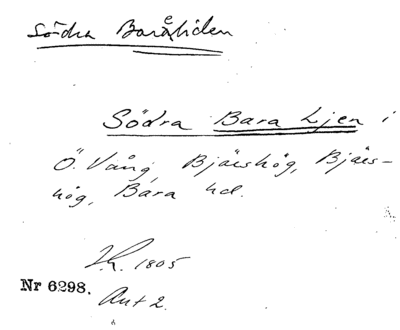 Södra Baraliden
Södra Bara Ljen i
Ö. Vång, Bjäershög, Bjäers-
hög, Bara hd.
1805
Nr 6298.
Akt 2.